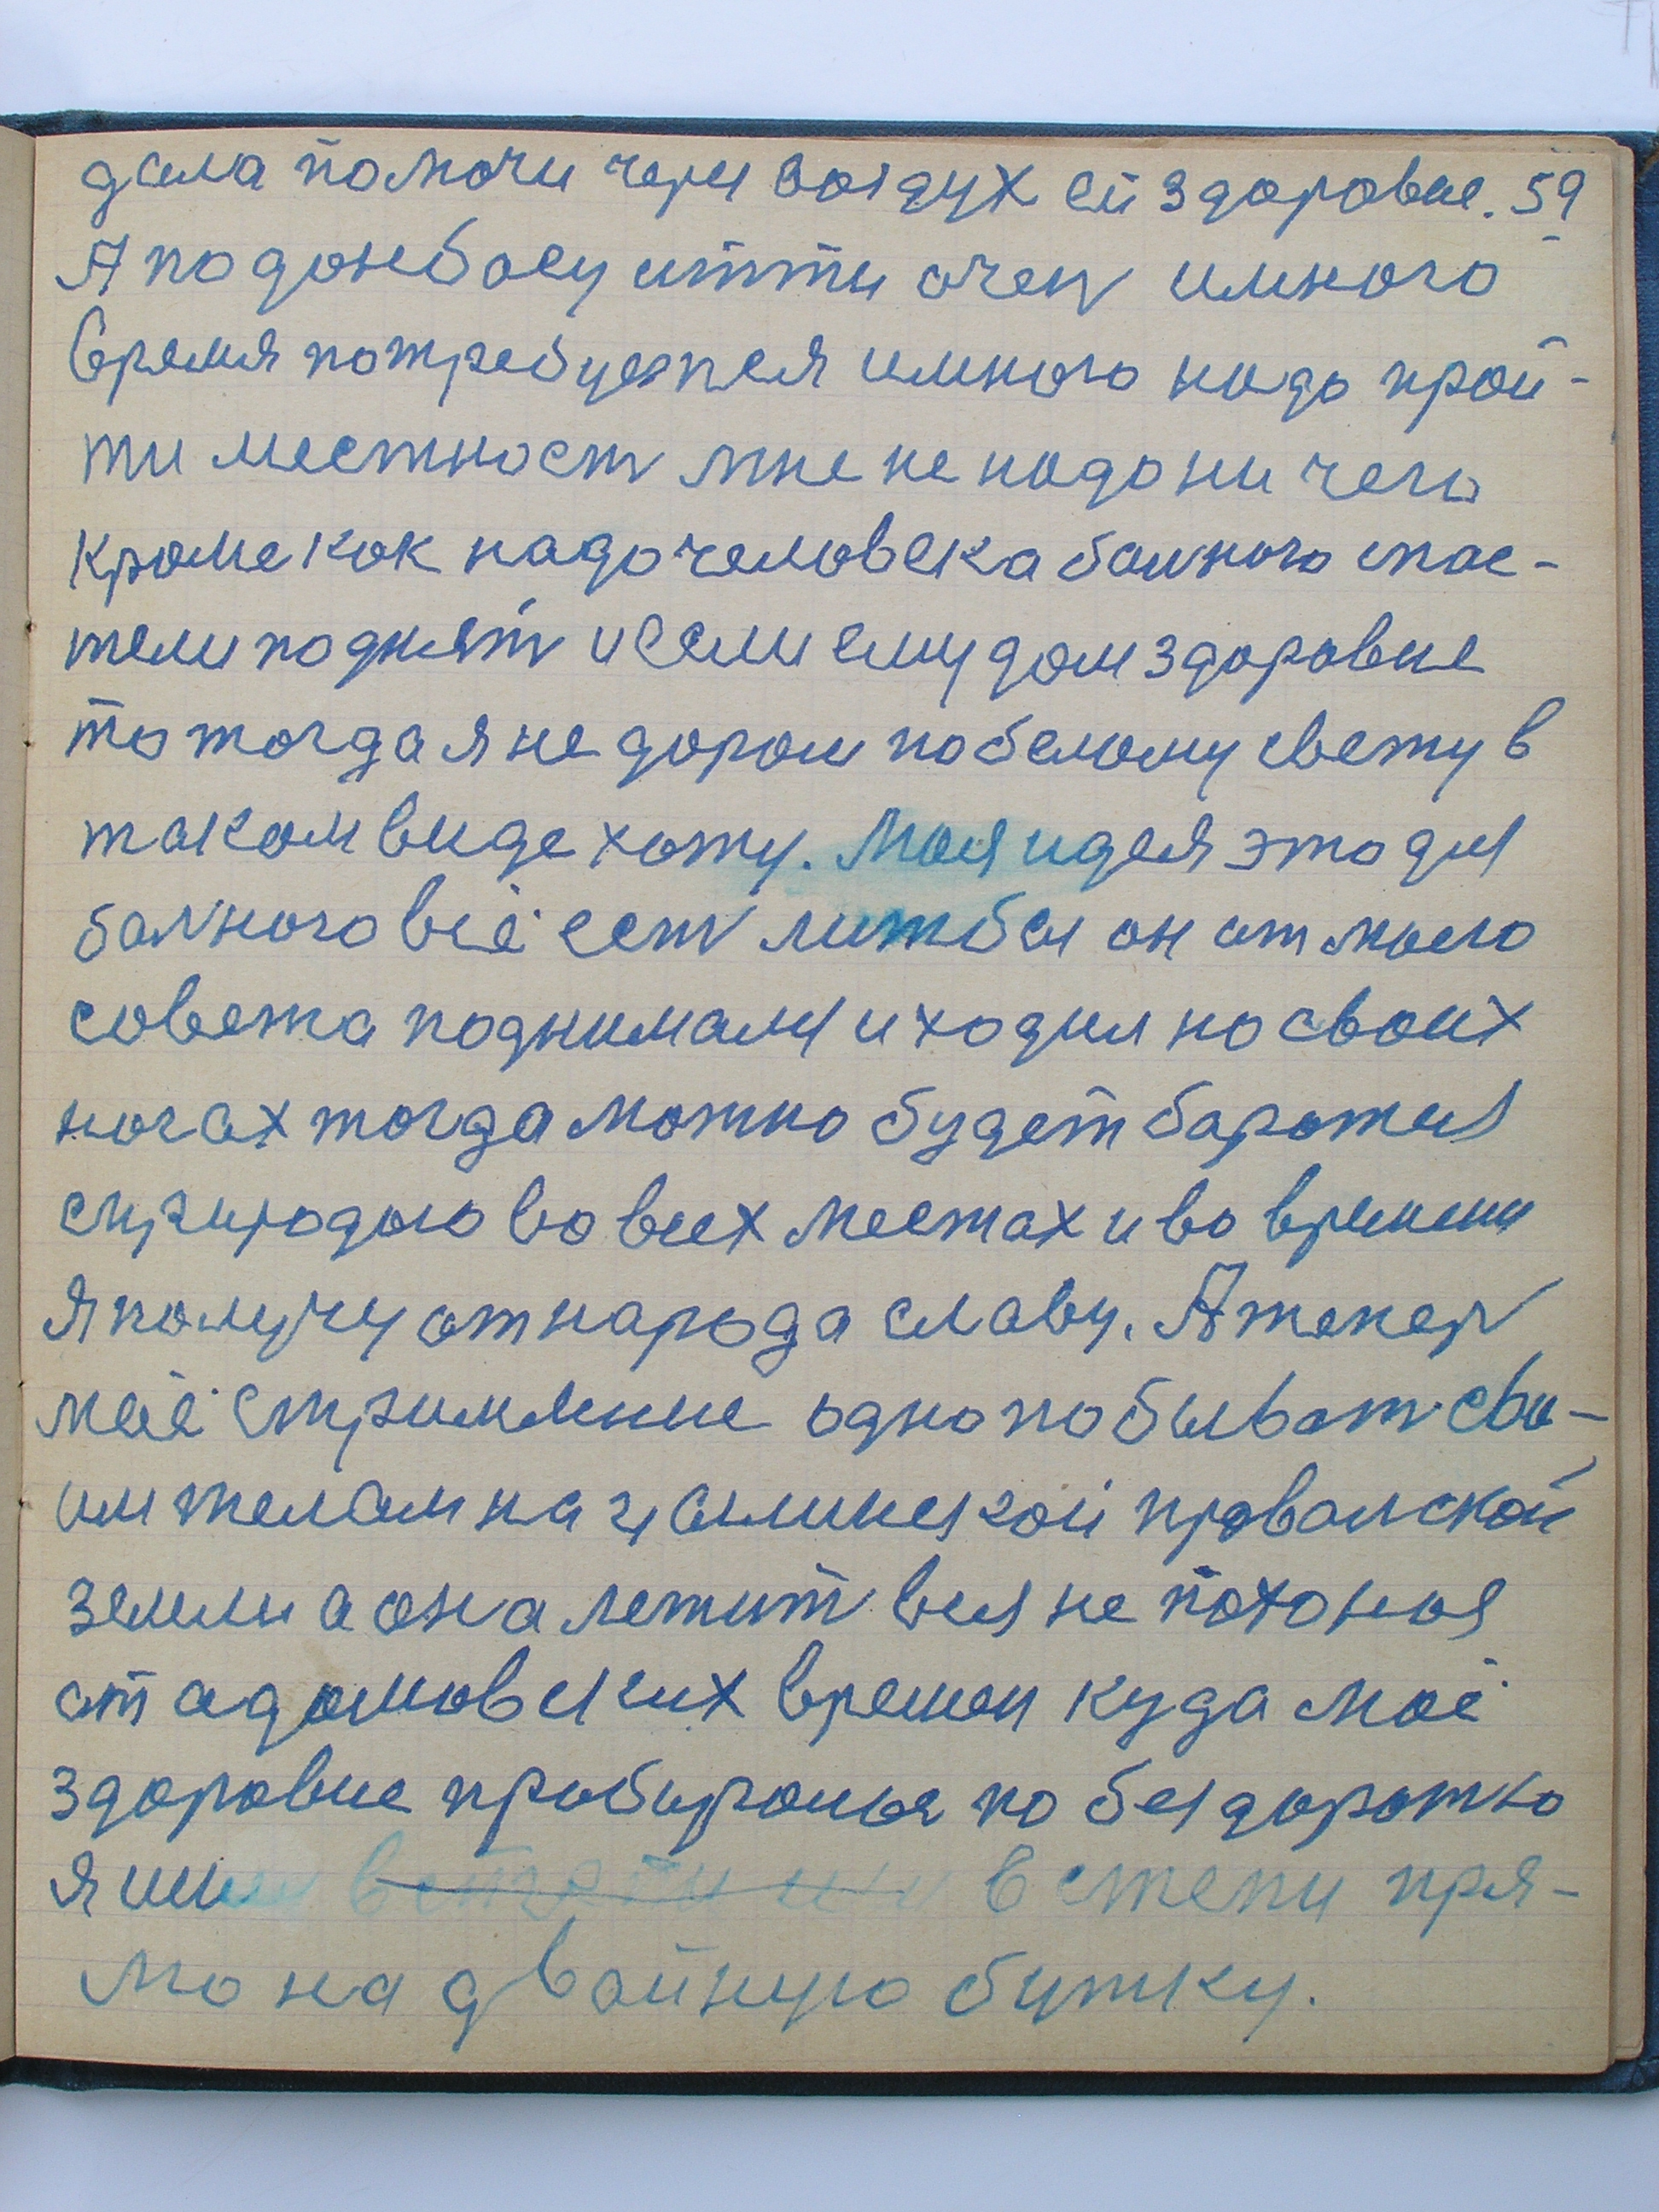 дала помочи через воздух ей здоровие. 59
А по донбасу итти очен имного
время потребуется имного надо прой-
ти местност мне не надо ни чего
кроме как надо человека болного спос-
тели поднят и если ему дам здоровие
то тогда я не даром по белому свету в
таком виде хожу. Моя идея это для
болного всё ест литбы он от моего
совета поднимался и ходил на своих
ногах тогда можно будет боротися
сприродою во всех местах и во времени
я получу от народа славу. А тепер
моё стримление одно побыват сво-
им телам на провалской
земли а она лежит вся не паханая
от адамовских времён куда моё
здоровие пробиралься по бездорожю
я шёл в степи пря-
мо на двойную бутку.